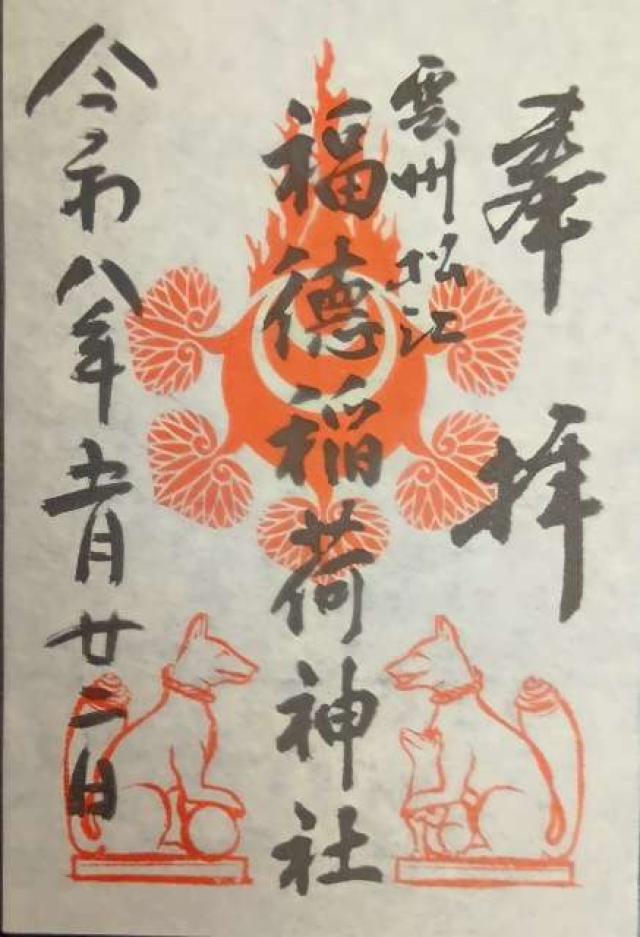 奉拝
雲州松江
福德稲荷神社
令和八年五月廿二日